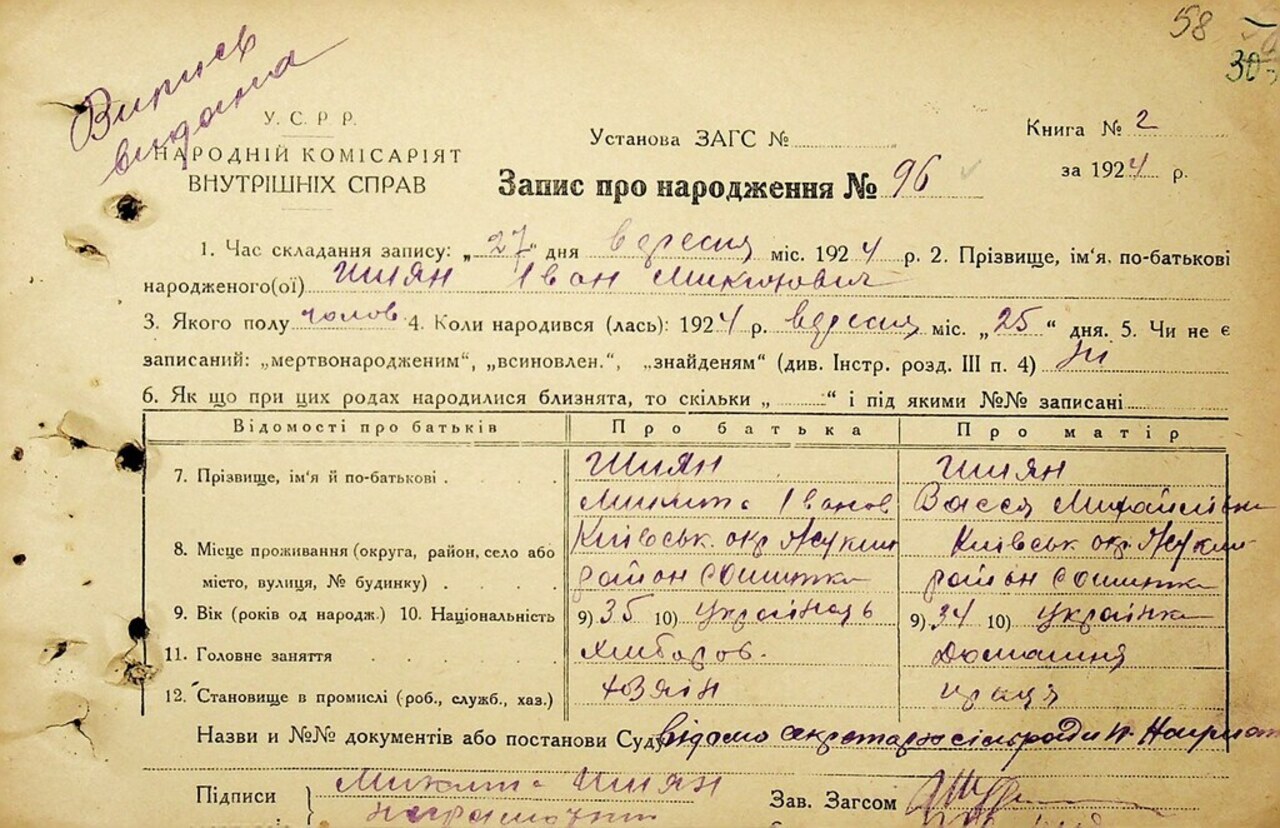 58
30
Випись
видана
У. С. Р. Р.
НАРОДНІЙ КОМІСАРІЯТ
ВНУТРІШНІХ СПРАВ
Установа ЗАГС №
Книга № 2
за 1924 р.
Запис про народження № 96
1. Час складання запису: „27“ дня вересня міс. 1924 р. 2. Прізвище, ім'я, по-батькові
народженого(ої) Шиян Іван Микитович
3. Якого полу чолов 4. Коли народився (лась): 1924 р. вересня міс. „25“ дня. 5. Чи не є
записаний: „мертвонародженим“, „всиновлен.“, „знайденям“ (див. Інстр. розд. III п. 4) Ні
6. Як що при цих родах народилися близнята, то скільки „ “ і під якими №№ записані
Відомості про батьків Про батька Про матір
7. Прізвище, ім'я й по-батькові Шиян Шиян
Микита Іванов Васся Михайлівна
8. Місце проживання (округа, район, село або Київськ. окр. Київськ окр.
місто, вулиця, № будинку) район район
9. Вік (років од народж.) 10. Національність 9) 35 10) Українець 9) 34 10) Українка
11. Головне заняття Хлібороб. Домашня
12. Становище в промислі (роб., служб., хаз.) Хазяїн праця
Назви и №№ документів або постанови Суду відомо секретарю сільради
Підписи } Микита Шиян Зав. Загсом
неграмотний